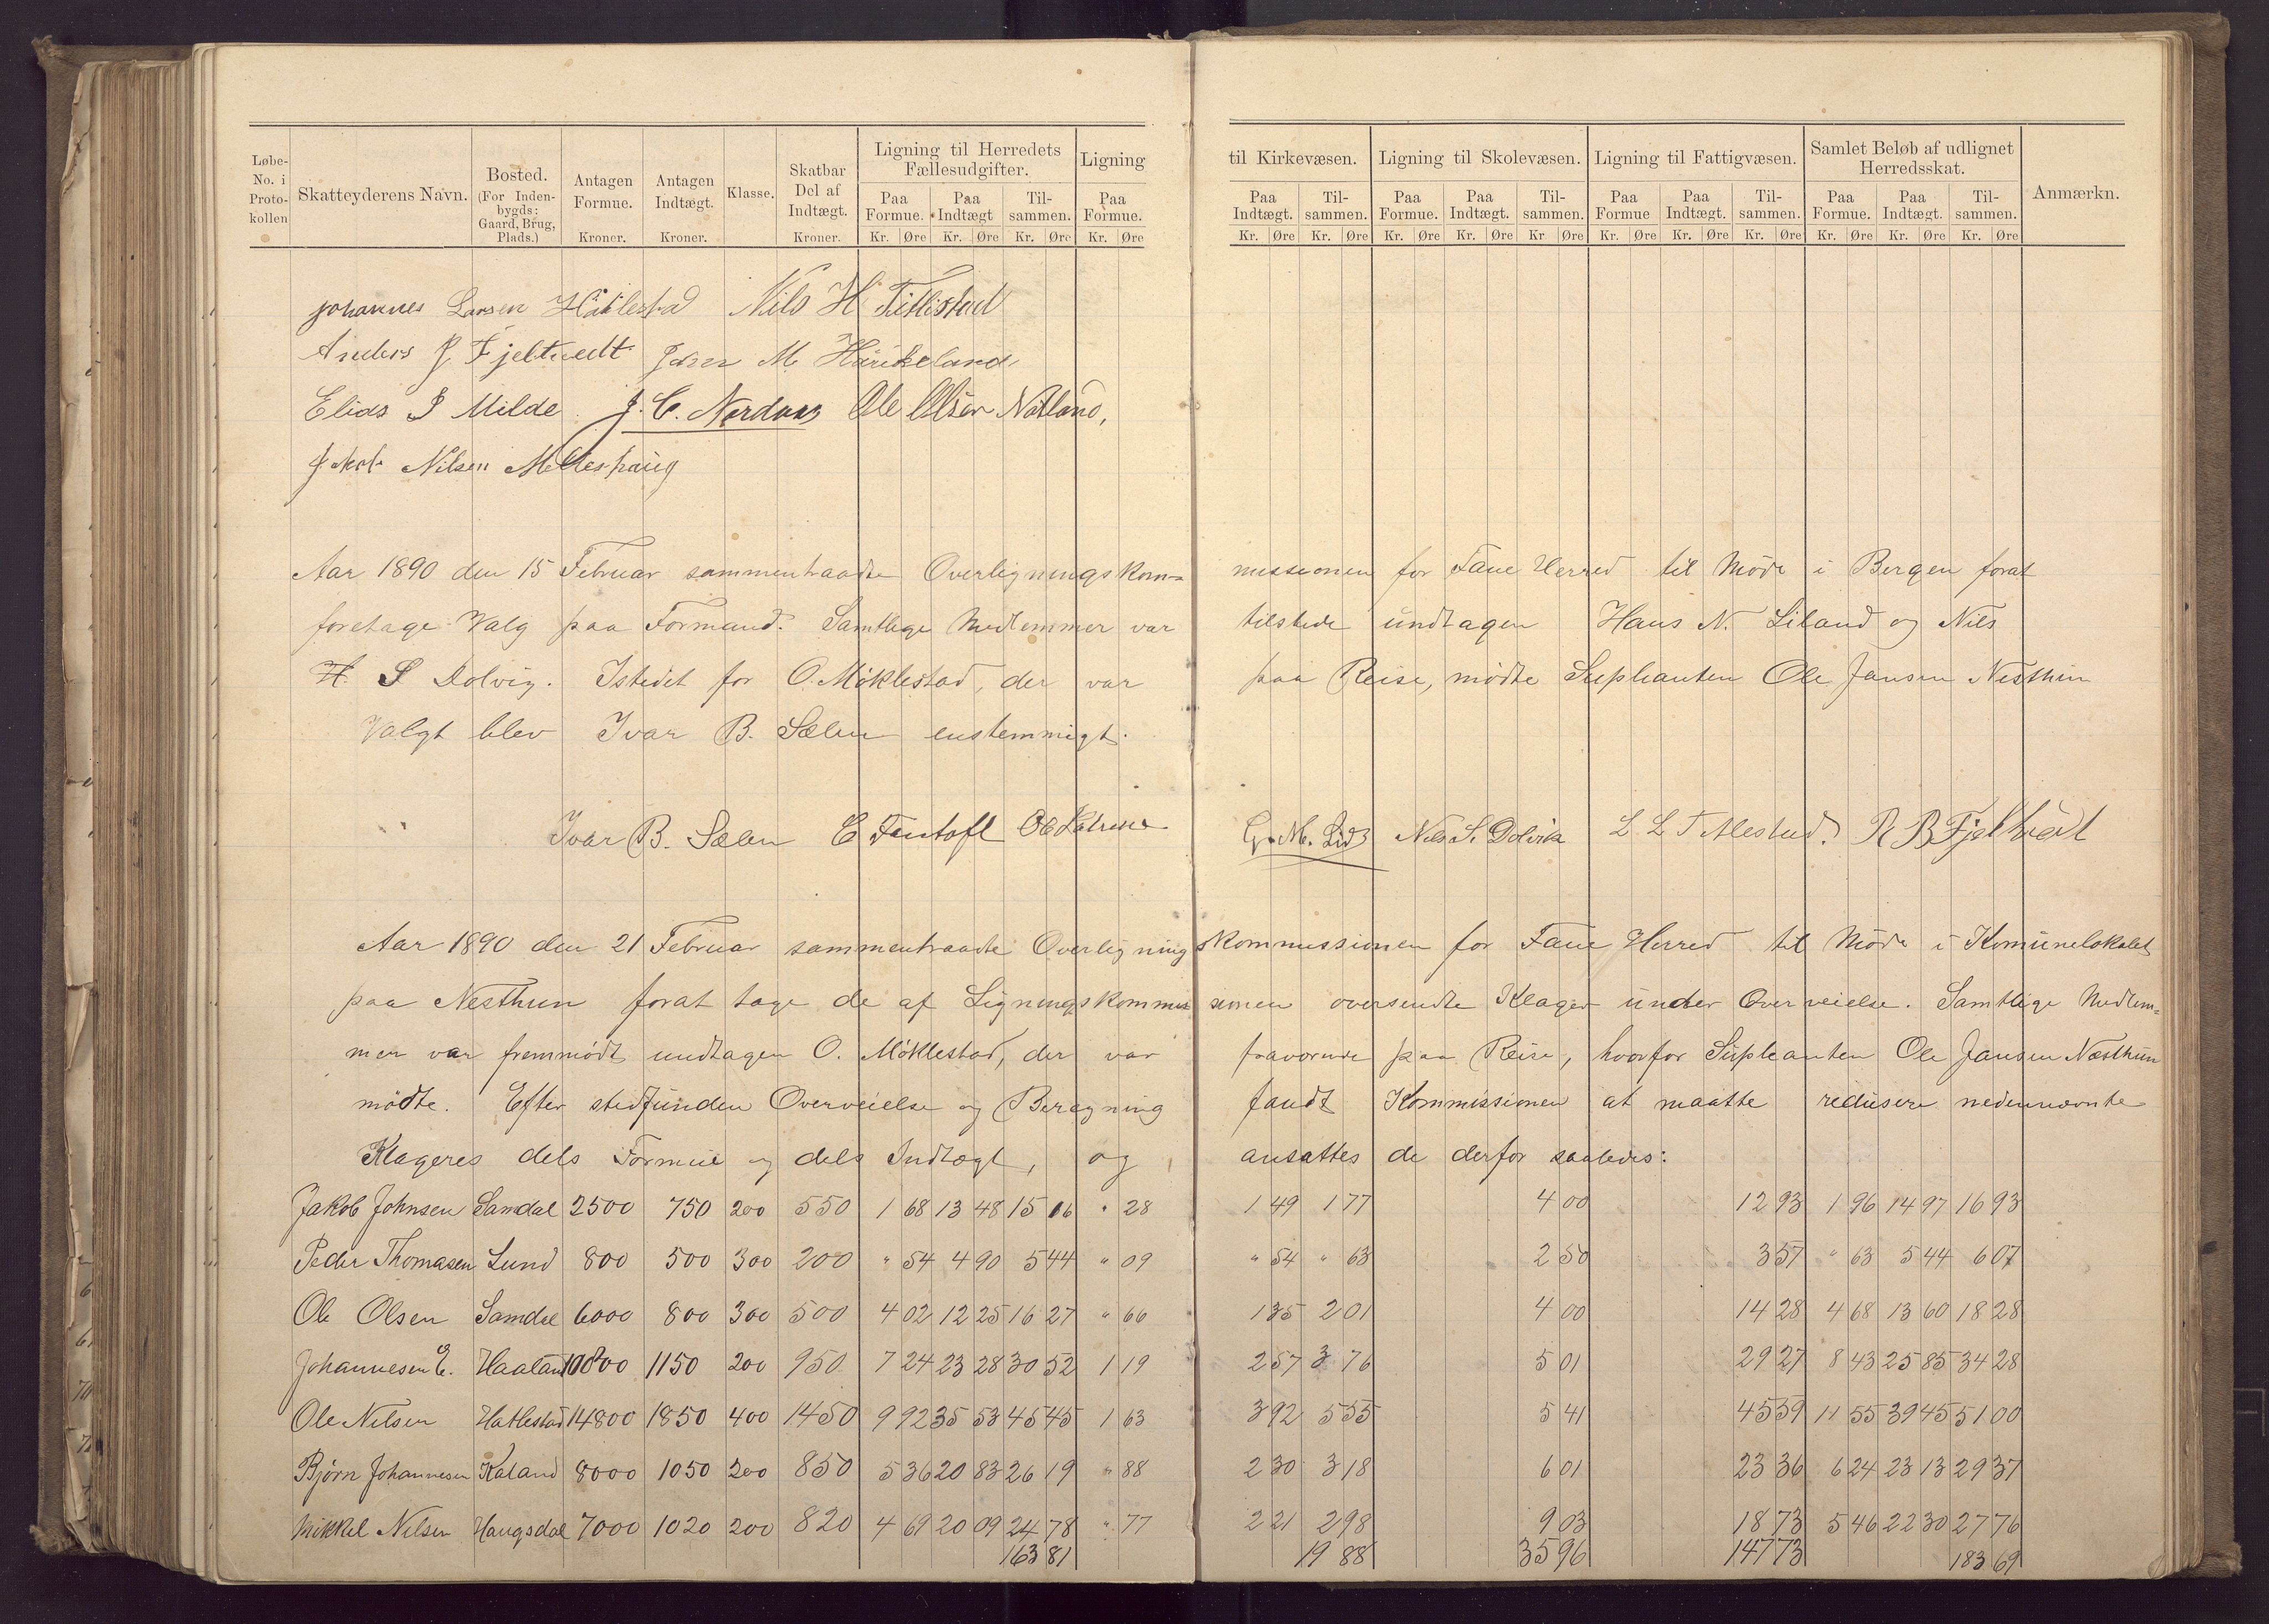 Løbe-No. i Protokollen
Skatteyderens Navn.
Bosted. (For Indenbygds: Gaard, Brug, Plads.)
Antagen Formue. Kroner.
Antagen Indtægt. Kroner.
Klasse.
Skatbar Del af Indtægt. Kroner.
Ligning til Herredets Fællesudgifter.
Paa Formue. Kr. Øre Paa Indtægt Kr. Øre Tilsammen. Kr. Øre
Ligning
Paa Formue. Kr. Øre
til Kirkevæsen.
Paa Indtægt. Kr. Øre Tilsammen. Kr. Øre
Ligning til Skolevæsen.
Paa Formue. Kr. Øre Paa Indtægt. Kr. Øre Tilsammen. Kr Øre
Ligning til Fattigvæsen.
Paa Formue Kr. Øre Paa Indtægt. Kr. Øre Tilsammen. Kr. Øre
Samlet Beløb af udlignet Herredsskat.
Paa Formue. Kr. Øre Paa Indtægt. Kr. Øre Tilsammen. Kr. Øre
Anmærkn.
Johannes Larsen Hatlestad Nils H Titlestad
Anders J Fjeltvedt M
Elias J Milde. J. C. Nordaas Ole Olsen Natland,
Nilsen Melleshaug
Aar 1890 den 15 Februar sammentraadte Overligningskom= missionen for Fane Herred til Møde i Bergen forat
foretage Valg paa Formand. Samtlige Medlemmer var tilstede undtagen Hans N. Liland og Nils
H. S Dolvig. Istedet for O. Møklestad, der var paa Reise, mødte Supleanten Ole Jansen Nesthun
Valgt blev Ivar B. Sælen enstemmigt.
Ivar B. Sælen E Fantoft G. M. Lid Nils S. Dolvik L L Titlestad. R B Fjeldtvedt
Aar 1890 den 21 Februar sammentraadte Overligningskommissionen for Fane Herred til Møde i Komunelokalet
paa Nesthun forat tage de af Ligningskommissionen oversendte Klager under Overveielse. Samtlige Medlem=
mer var fremmødt undtagen O. Møklestad, der var fraværende paa Reise, hvorfor Supleanten Ole Jansen Næsthun
mødte. Efter stedfunden Overveielse og Beregning fandt Kommissionen at maatte redusere nedennævnte
Klageres dels Formue og dels Indtægt, og ansattes de derfor saaledes:
Jakob Johnsen Samdal 2500 750 200 550 1 68 13 48 15 16 " 28 1 49 1 77 4 00 12 93 1 96 14 97 16 93
Peder Thomasen Lund 800 500 300 200 " 54 4 90 5 44 " 09 " 54 " 63 2 50 3 57 " 63 5 44 6 07
Ole Olsen Samdal 6000 800 300 500 4 02 12 25 16 27 " 66 1 35 2 01 4 00 14 28 4 68 13 60 18 28
Johannesen E. Haaland 10800 1150 200 950 7 24 23 28 30 52 1 19 2 57 3 76 5 01 29 27 8 43 25 85 34 28
Ole Nilsen Hatlestad 14800 1850 400 1450 9 92 35 53 45 45 1 63 3 92 5 55 5 41 45 59 11 55 39 45 51 00
Bjørn Johannesen Kaland 8000 1050 200 850 5 36 20 83 26 19 " 88 2 30 3 18 6 01 23 36 6 24 23 13 29 37
Mikkel Nilsen Haugsdal 7000 1020 200 820 4 69 20 09 24 78 " 77 2 21 2 98 9 03 18 73 5 46 22 30 27 76
163 81 19 88 35 96 147 73 183 69